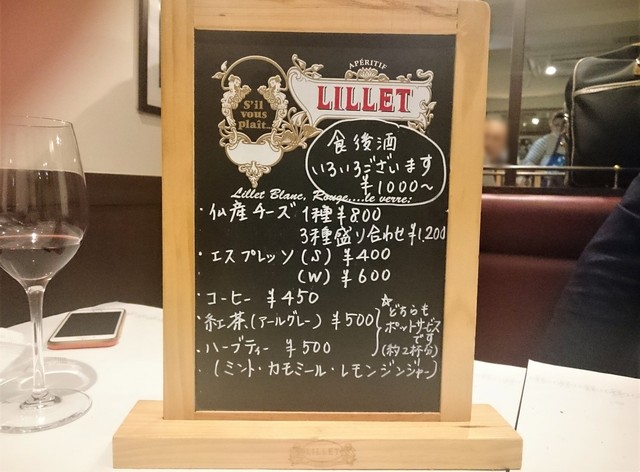 APÉRITIF
LILLET
S'il
vous
plaît...
食後酒
いろいろございます
¥1000~
Lillet Blanc, Rouge....le verre:
・仏産チーズ 1種 ¥800
3種盛り合わせ ¥1,200
・エスプレッソ (S) ¥400
(W) ¥600
・コーヒー ¥450
・紅茶(アールグレー) ¥500
・ハーブティー ¥500
☆どちらも
ポットサービス
です
(約2杯分)
・(ミント・カモミール・レモンジンジャー)
LILLET